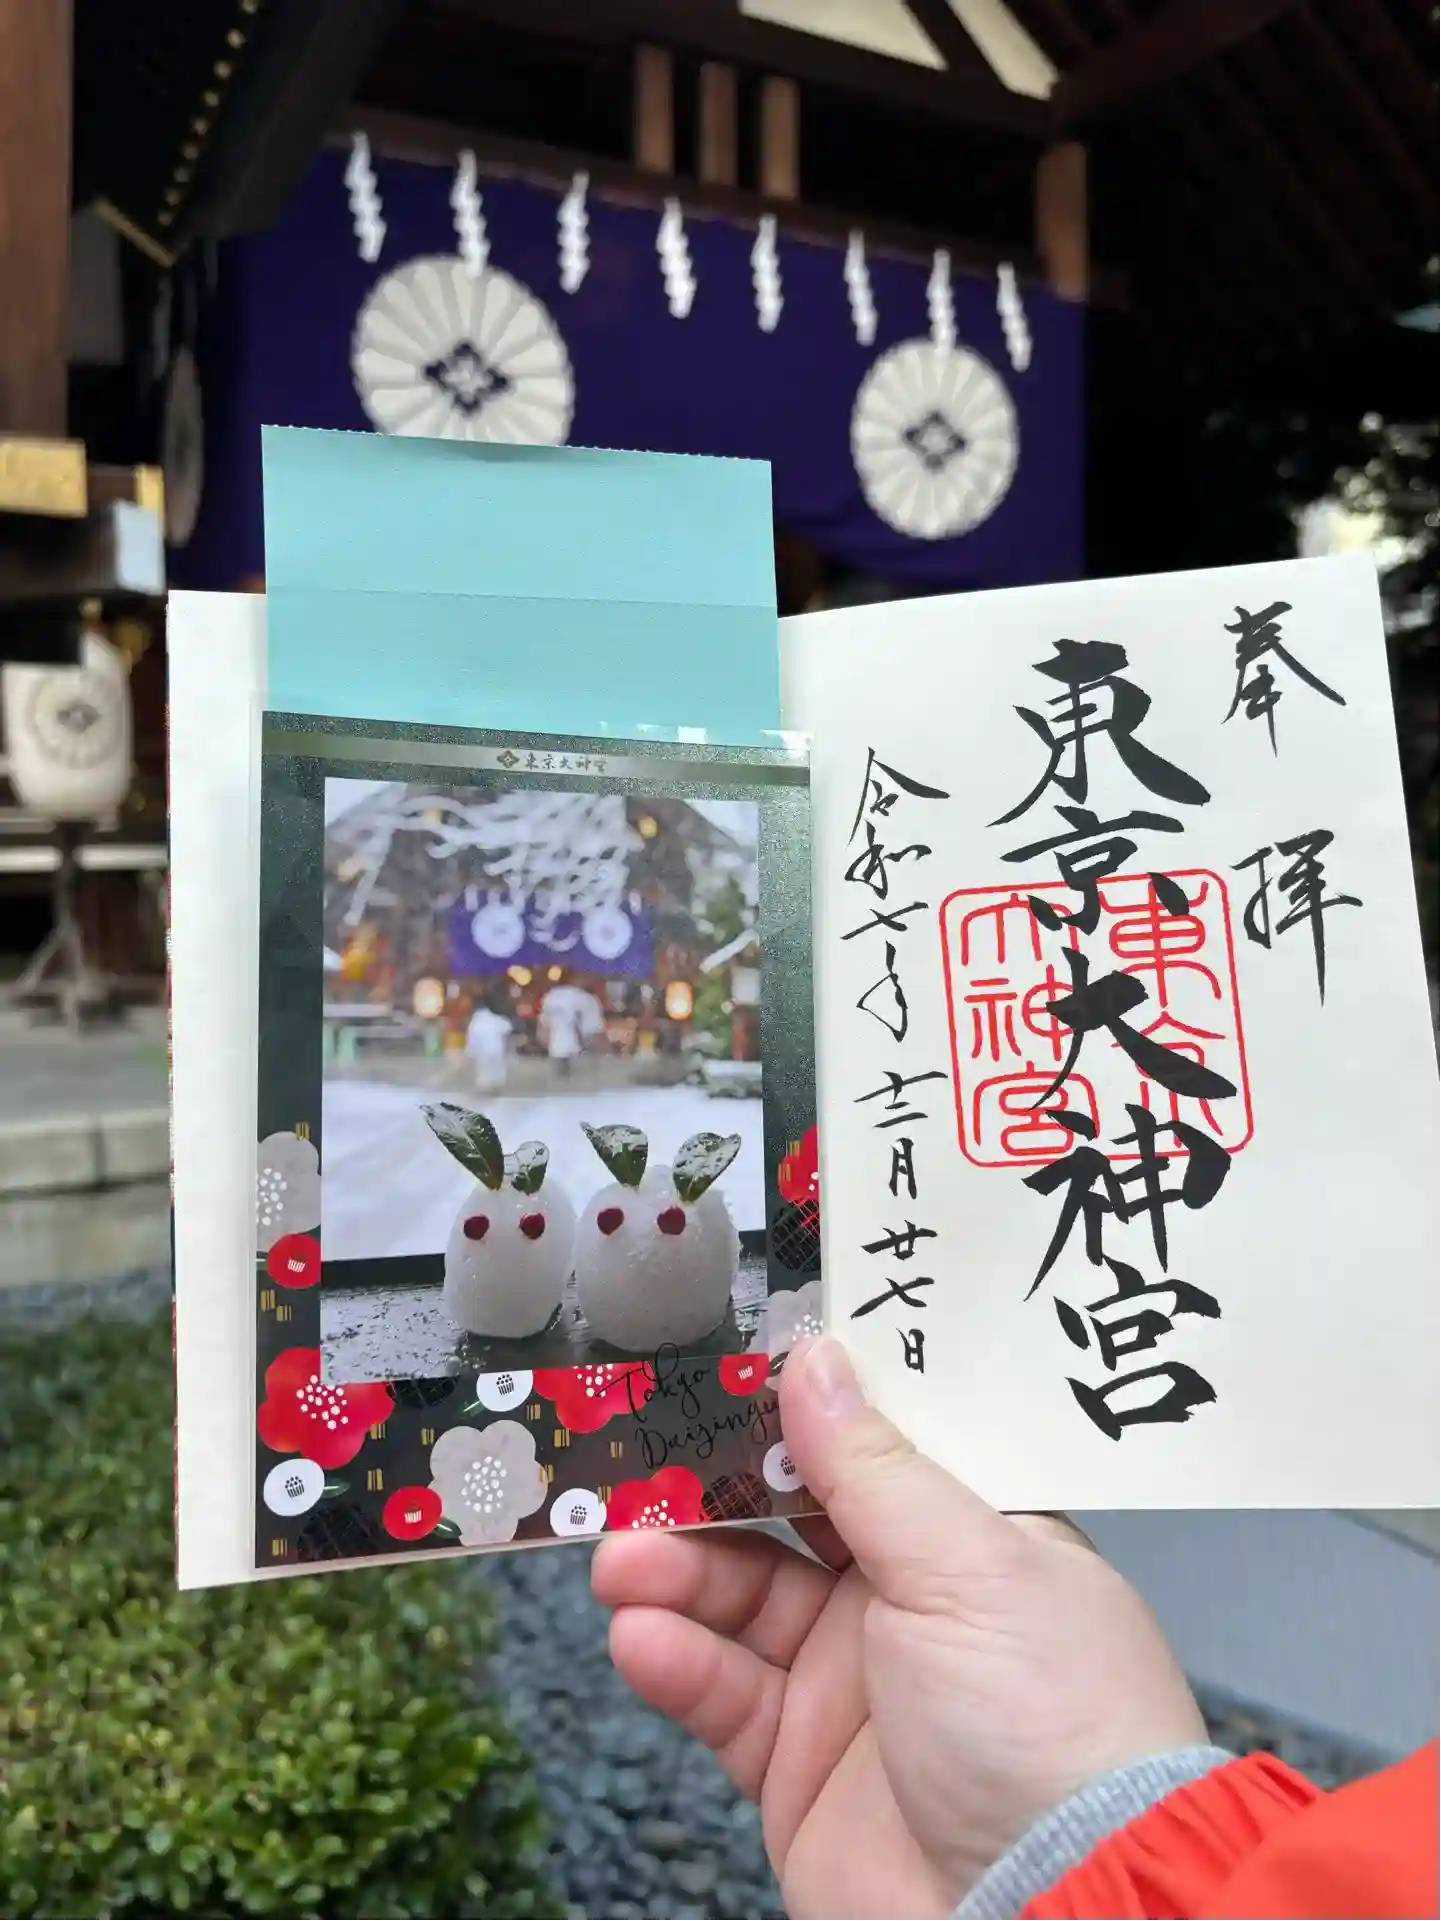 奉拝
東京大神宮
東京
大神宮
令和七年十二月廿七日
東京大神宮
Tokyo
Daijingu